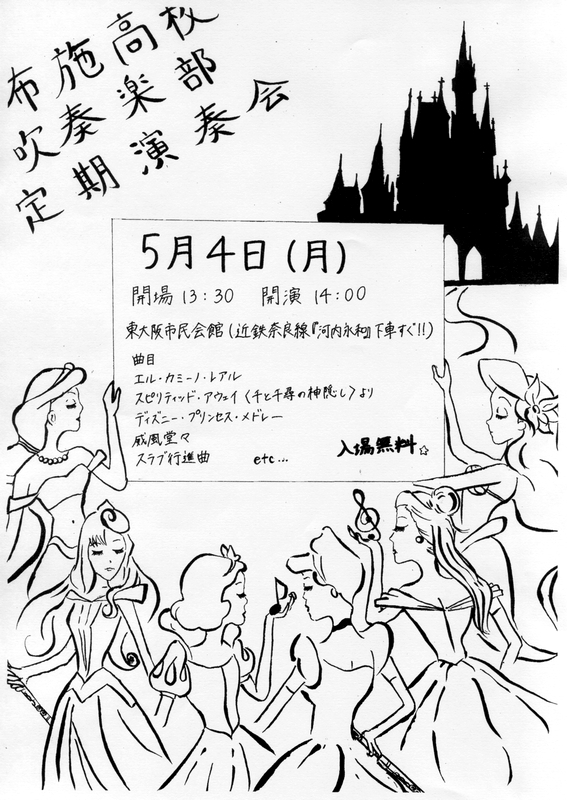 布施高校
吹奏楽部
定期演奏会
5月4日(月)
開場13:30 開演14:00
東大阪市民会館(近鉄奈良線『河内永和』下車すぐ!!)
曲目
エル・カミーノ・レアル
スピリティッド・アウェイ〈千と千尋の神隠し〉より
ディズニー・プリンセス・メドレー
威風堂々
スラブ行進曲 etc... 入場無料☆